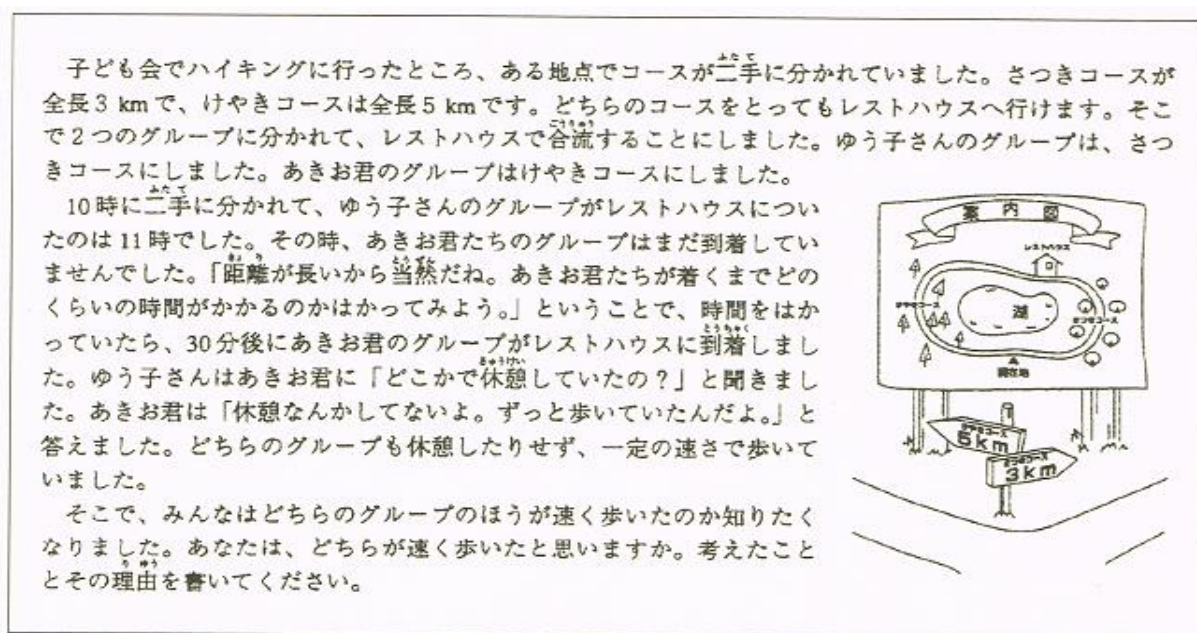 子ども会でハイキングに行ったところ、ある地点でコースが二手に分かれていました。さつきコースが
全長3 kmで、けやきコースは全長5 kmです。どちらのコースをとってもレストハウスへ行けます。そこ
で2つのグループに分かれて、レストハウスで合流することにしました。ゆう子さんのグループは、さつ
きコースにしました。あきお君のグループはけやきコースにしました。
10時に二手に分かれて、ゆう子さんのグループがレストハウスについ
たのは11時でした。その時、あきお君たちのグループはまだ到着してい
ませんでした。「距離が長いから当然だね。あきお君たちが着くまでどの
くらいの時間がかかるのかはかってみよう。」ということで、時間をはか
っていたら、30分後にあきお君のグループがレストハウスに到着しまし
た。ゆう子さんはあきお君に「どこかで休憩していたの？」と聞きまし
た。あきお君は「休憩なんかしてないよ。ずっと歩いていたんだよ。」と
答えました。どちらのグループも休憩したりせず、一定の速さで歩いて
いました。
そこで、みんなはどちらのグループのほうが速く歩いたのか知りたく
なりました。あなたは、どちらが速く歩いたと思いますか。考えたこと
とその理由を書いてください。
案内図
レストハウス
けやきコース
湖
さつきコース
現在地
けやきコース
5km
さつきコース
3km